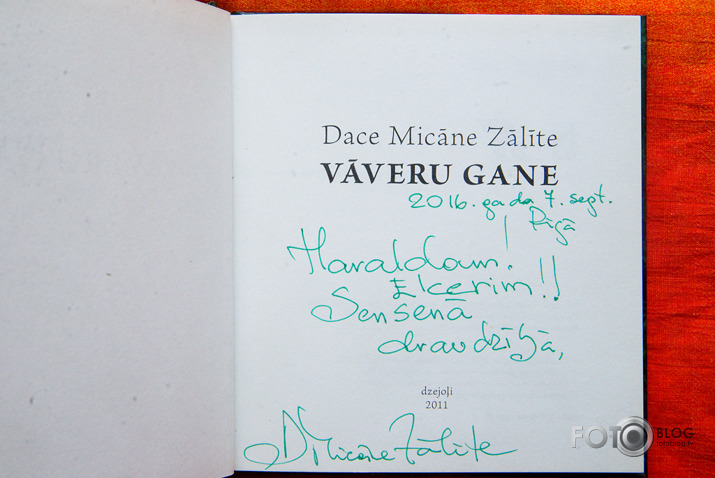 Dace Micāne Zālīte
VĀVERU GANE
2016. gada 7. sept.
Rīgā
Haraldam!
Elcerim!!
Sensenā
draudzībā,
dzejoļi
2011
DMicāne Zālīte
FOTOBLOG
fotoblog.lv